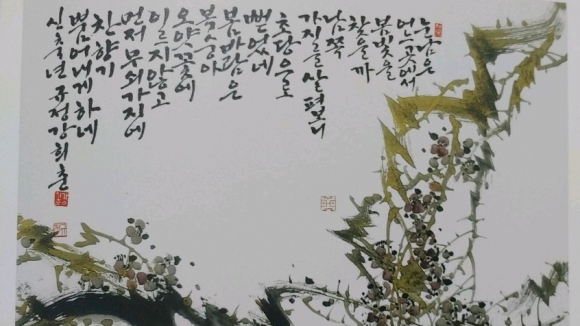 눈 남은
어느 곳에서
봄빛을
찾을까
남쪽
가지를 살펴보니
초당으로
뻗었네
봄바람은
복숭아
오얏꽃에
이르지 않고
먼저 가지에
찬 향기
뿜어내게 하네
신축년 규정 강희춘